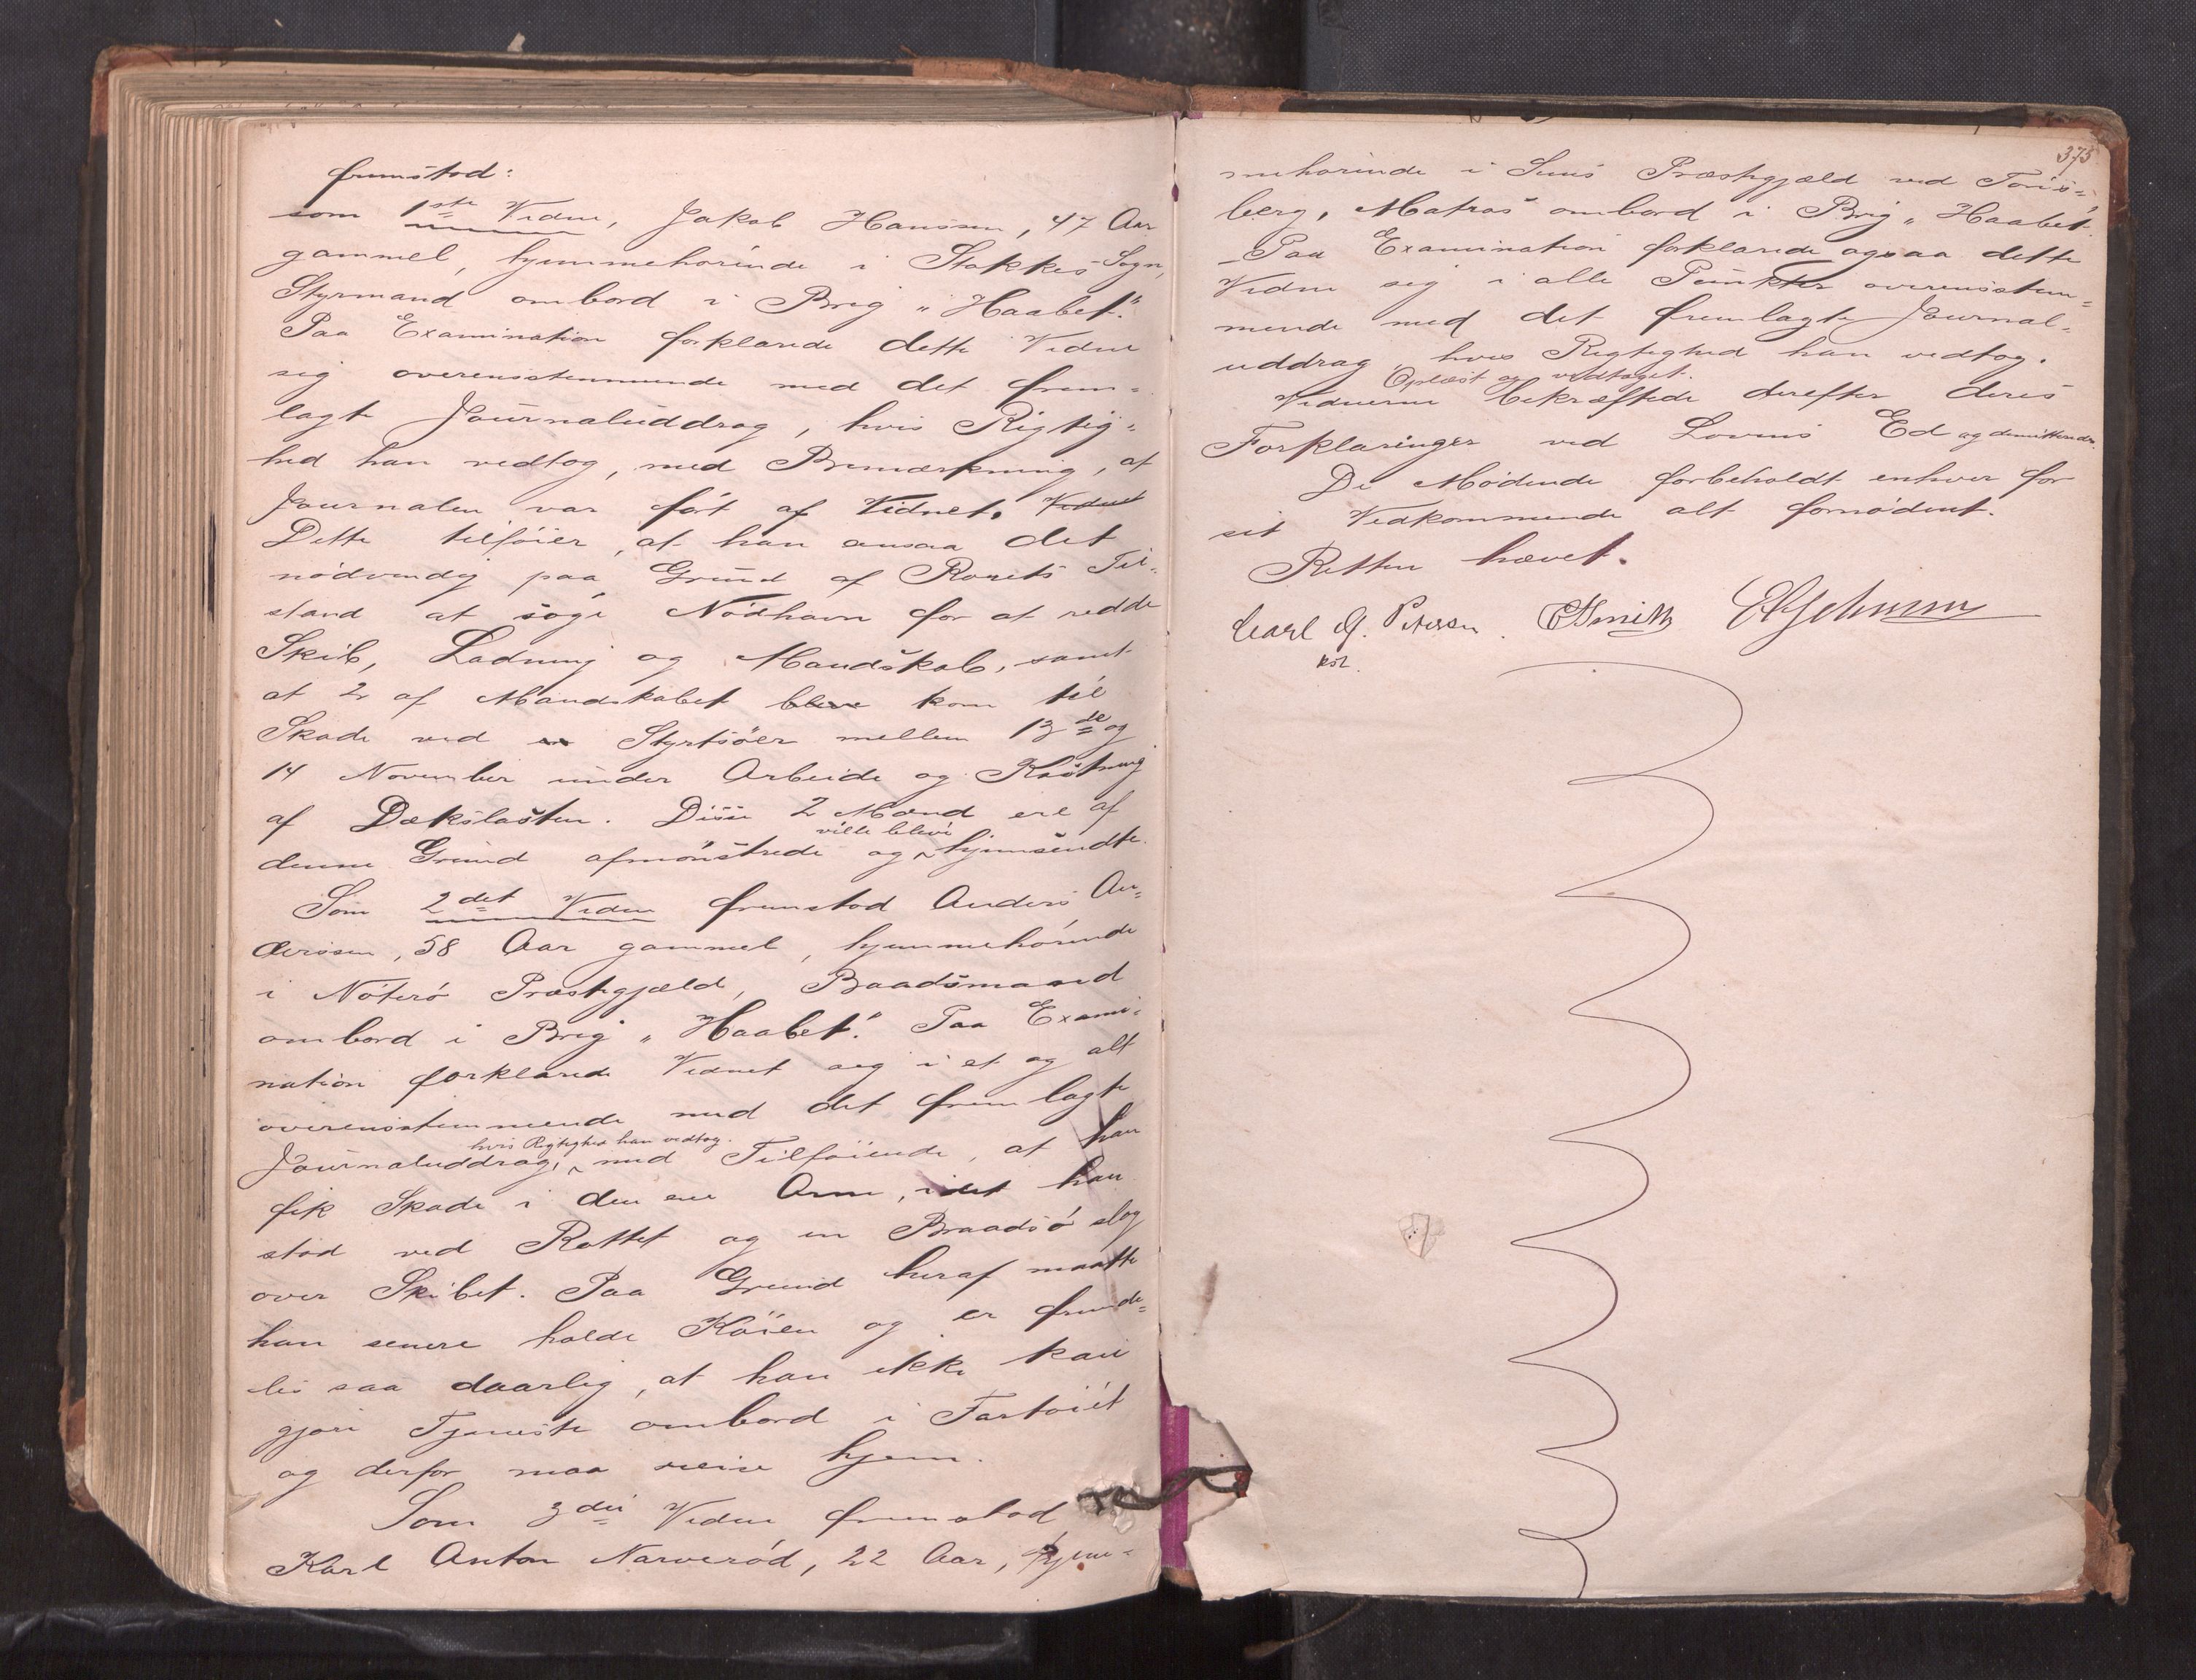 fremstod:
som 1ste Vidne, Jakob Hanssen, 47 Aar
gammel, hjemmehørende i Stokkes Sogn,
Styrmand ombord i Brig "Haabet."
Paa Examination forklarede dette Vidne
sig overensstemmende med det frem-
lagte Journaluddrag, hvis Rigtig-
hed han vedtog, med Bemærkning, at
Journalen var ført af Vidnet. Vidnet
Dette tilføier, at han ansaa det
nødvendig paa Grund af Roerets Til-
stand at søge Nødhavn for at redde
Skib, Ladning og Mandskab, samt
at 2 af Mandskabet bleve kom til
Skade ved en Styrtsöer mellem 13de og
14 November under Arbeide og Kastning
af Dækslasten. Disse 2 Mænd ere af
denne Grund afmønstrede og ville bleve hjemsendte.
Som 2det Vidne fremstod Anders An-
derssen, 58 Aar gammel, hjemmehørende
i Nøterø Præstegjæld, Baadsmand
ombord i Brig "Haabet." Paa Exami-
nation forklarede Vidnet sig i et og alt
overensstemmende med det fremlagte
Journaluddrag, hvis Rigtighed han vedtog. med Tilføiende, at han
fik Skade i den ene Arm, idet han
stod ved Rattet og en Braadsø slog
over Skibet. Paa Grund heraf maatte
han senere holde Køien og er fremde-
les saa daarlig, at han ikke kan
gjøre Tjeneste ombord i Fartøiet
og derfor maa reise hjem.
Som 3die Vidne fremstod
Karl Anton Narverød, 22 Aar, hjem-
375
mehørende i Sems Præstegjæld ved Töns-
berg, Matros ombord i Brig "Haabet".
- Paa Examination forklarede ogsaa dette
Vidne sig i alle Punkter overensstem-
mende med det fremlagte Journal-
uddrag, hvis Rigtighed han vedtog.
Oplæst og vedtaget.
Vidnerne bekræftede derefter deres
Forklaringer ved Lovens Ed og demitteredes.
De Mødende forbeholdt enhver for
sit Vedkommende alt fornødent.
Retten hævet.
Carl G. Petersen. CSmith
kst.